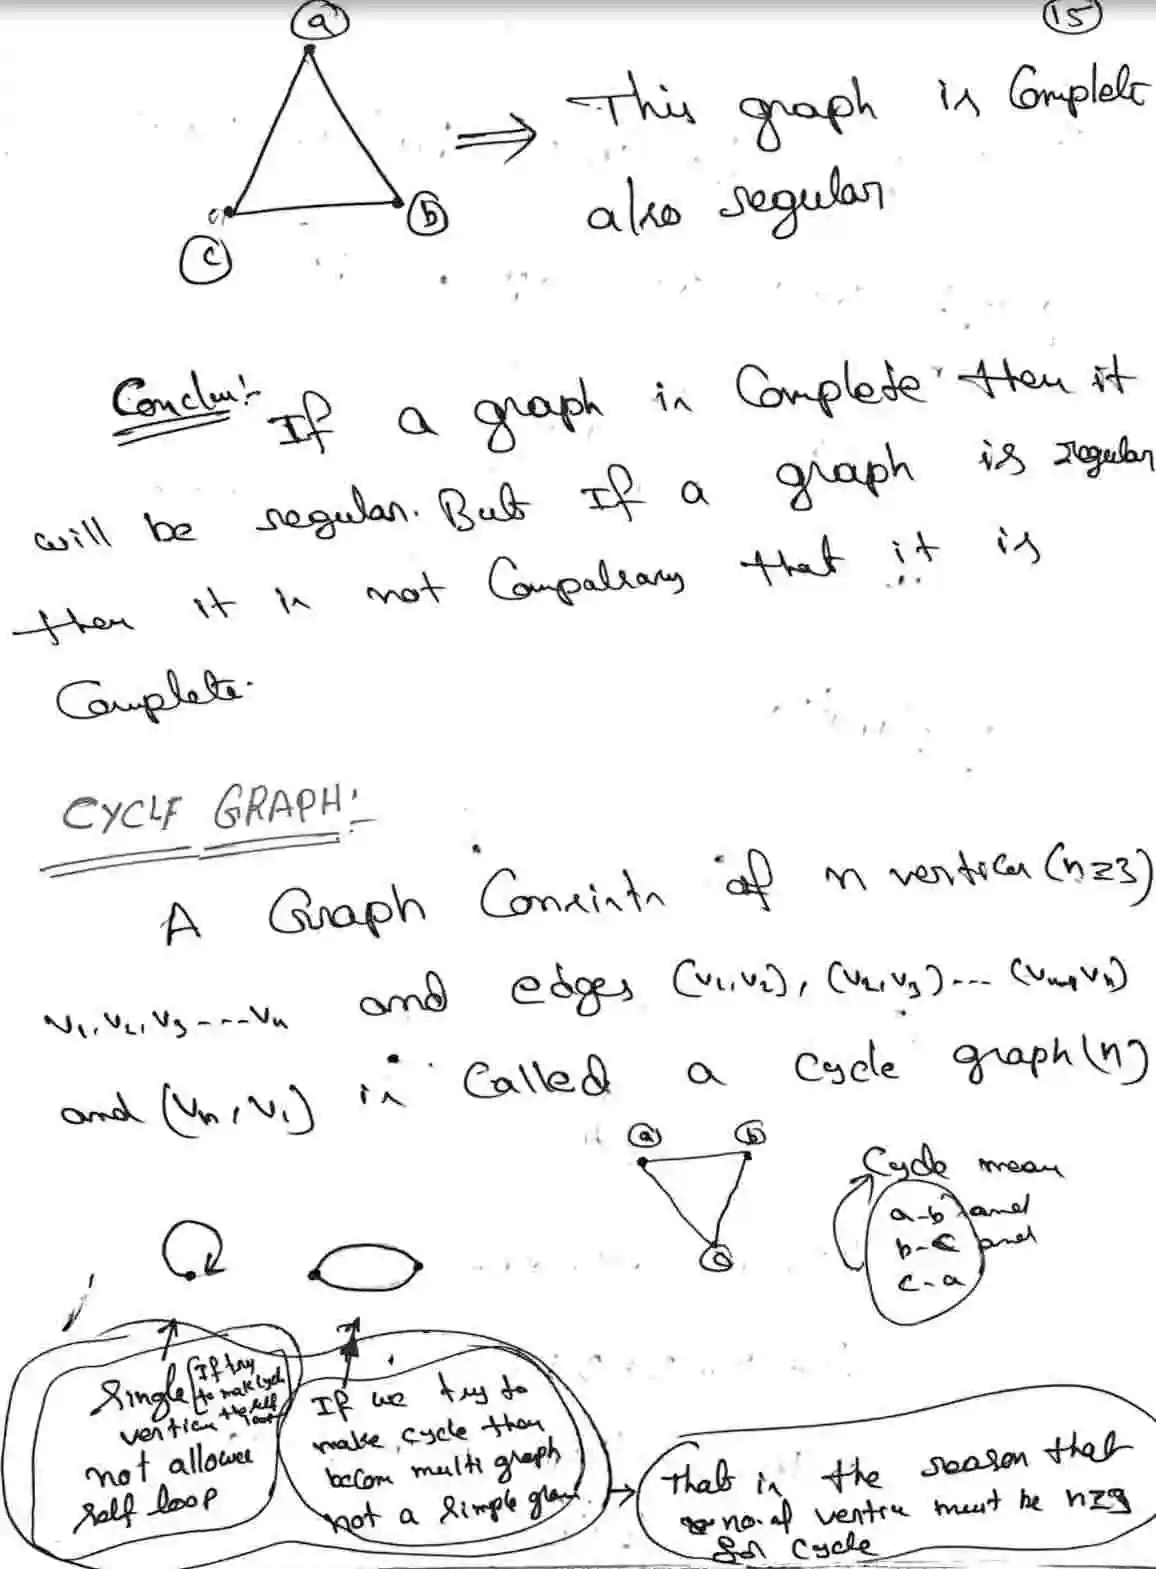 15
a
This graph is Complete
also regular
b
c
Conclu:- If a graph is Complete then it
will be regular. But If a graph is regular
then it is not Compalsary that it is
Complete.
CYCLE GRAPH:-
A Graph Consists of n vertices (n≥3)
v1, v2, v3 ---- vn and edges (v1,v2), (v2,v3) --- (vn-1,vn)
and (vn, v1) is Called a cycle graph (n)
a b
c
Cycle mean
a-b and
b-c and
c-a
Single
vertices
not allowed
self loop
If try
to make cycle
the self
loop
If we try to
make cycle then
becom multi graph
not a simple
That is the reason that
no. of vertex must be n≥3
for cycle